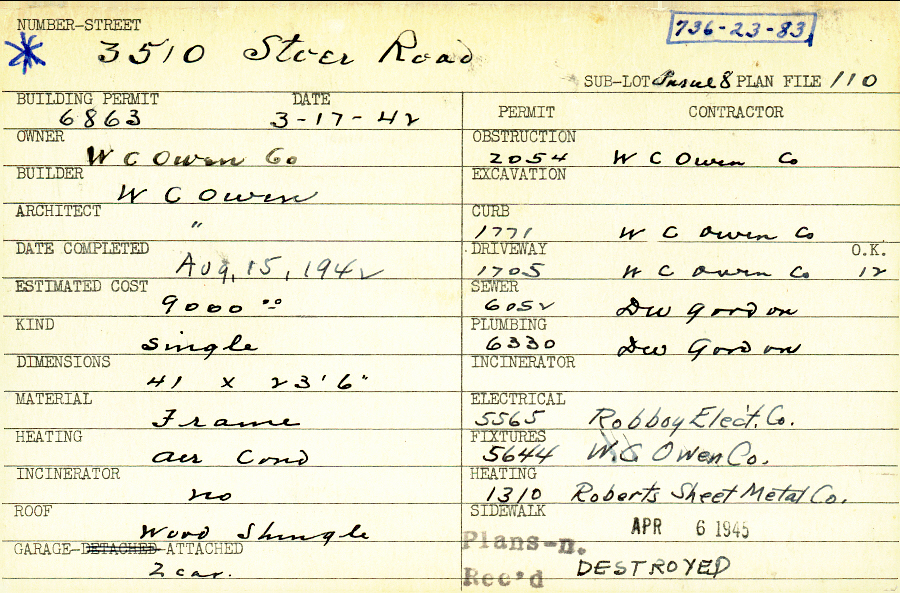 NUMBER-STREET
736-23-83
* 3510 Stoer Road
SUB-LOT Parcel 8 PLAN FILE 110
BUILDING PERMIT DATE
6863 3-17-42
OWNER
W C Owen Co
BUILDER
W C Owen
ARCHITECT
"
DATE COMPLETED
Aug, 15, 1942
ESTIMATED COST
9000 00
KIND
Single
DIMENSIONS
41 x 23'6"
MATERIAL
Frame
HEATING
air Cond
INCINERATOR
no
ROOF
Wood Shingle
GARAGE-DETACHED-ATTACHED
2 car.
PERMIT CONTRACTOR
OBSTRUCTION
2054 W C Owen Co
EXCAVATION
CURB
1771 W C Owen Co
DRIVEWAY O.K.
1705 W C Owen Co 12
SEWER
6052 DW Gordon
PLUMBING
6330 DW Gordon
INCINERATOR
ELECTRICAL
5565 Robboy Elect. Co.
FIXTURES
5644 W.C. Owen Co.
HEATING
1310 Roberts Sheet Metal Co.
SIDEWALK
APR 6 1945
Plans-n.
Rec'd DESTROYED